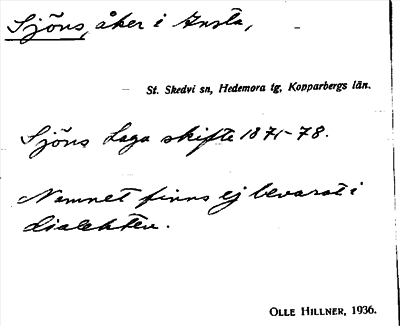 Sjöns, åker i Knsta,
St. Skedvi sn, Hedemora tg, Kopparbergs län.
Sjöns Laga skifte 1871-78.
Namnet finns ej bevarat i
dialekten.
OLLE HILLNER, 1936.